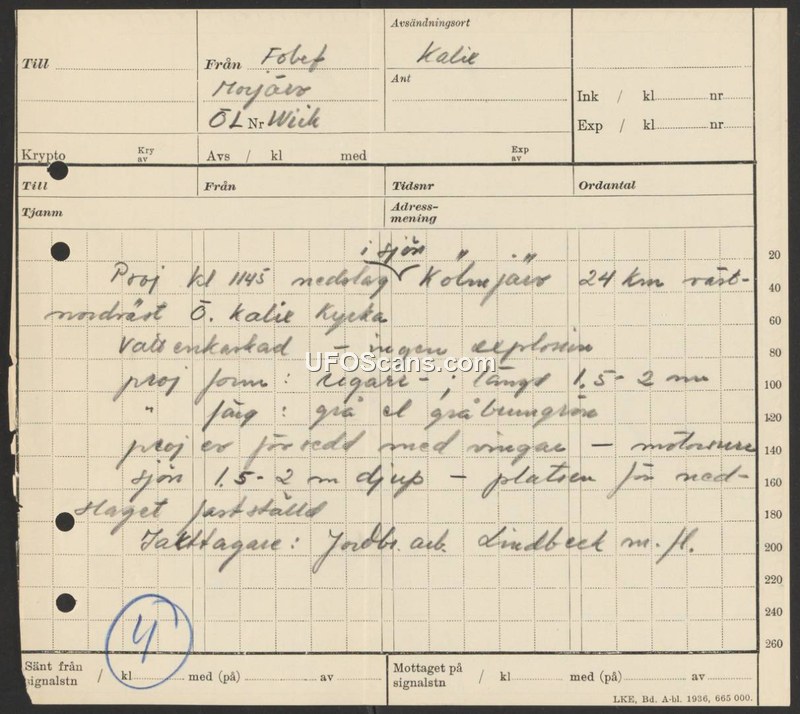 Avsändningsort
Till Från Fobef Kalix
Morjärv Ant
ÖL Nr Wiik Ink / kl nr
Exp / kl nr
Krypto Kry av Avs / kl med Exp av
Till Från Tidsnr Ordantal
Tjanm Adress-mening
i sjön
20
Proj kl 1145 nedslag Kölmjärv 24 km väst-
40
nordväst Ö. Kalix Kyrka
60
Vattenkaskad – ingen explosion
80
UFOScans.com
proj form: cigarr- ; längd 1,5-2 m
100
" färg: grå el gråbrungrön
120
proj ev försedd med vingar – motorsurr
140
sjön 1,5-2 m djup – platsen för ned-
160
slaget fastställd
180
Iakttagare: Jordbr. arb. Lindbeck m. fl.
200
220
240
4
260
Sänt från signalstn / kl med (på) av
Mottaget på signalstn / kl med (på) av
LKE, Bd. A-bl. 1936, 665 000.